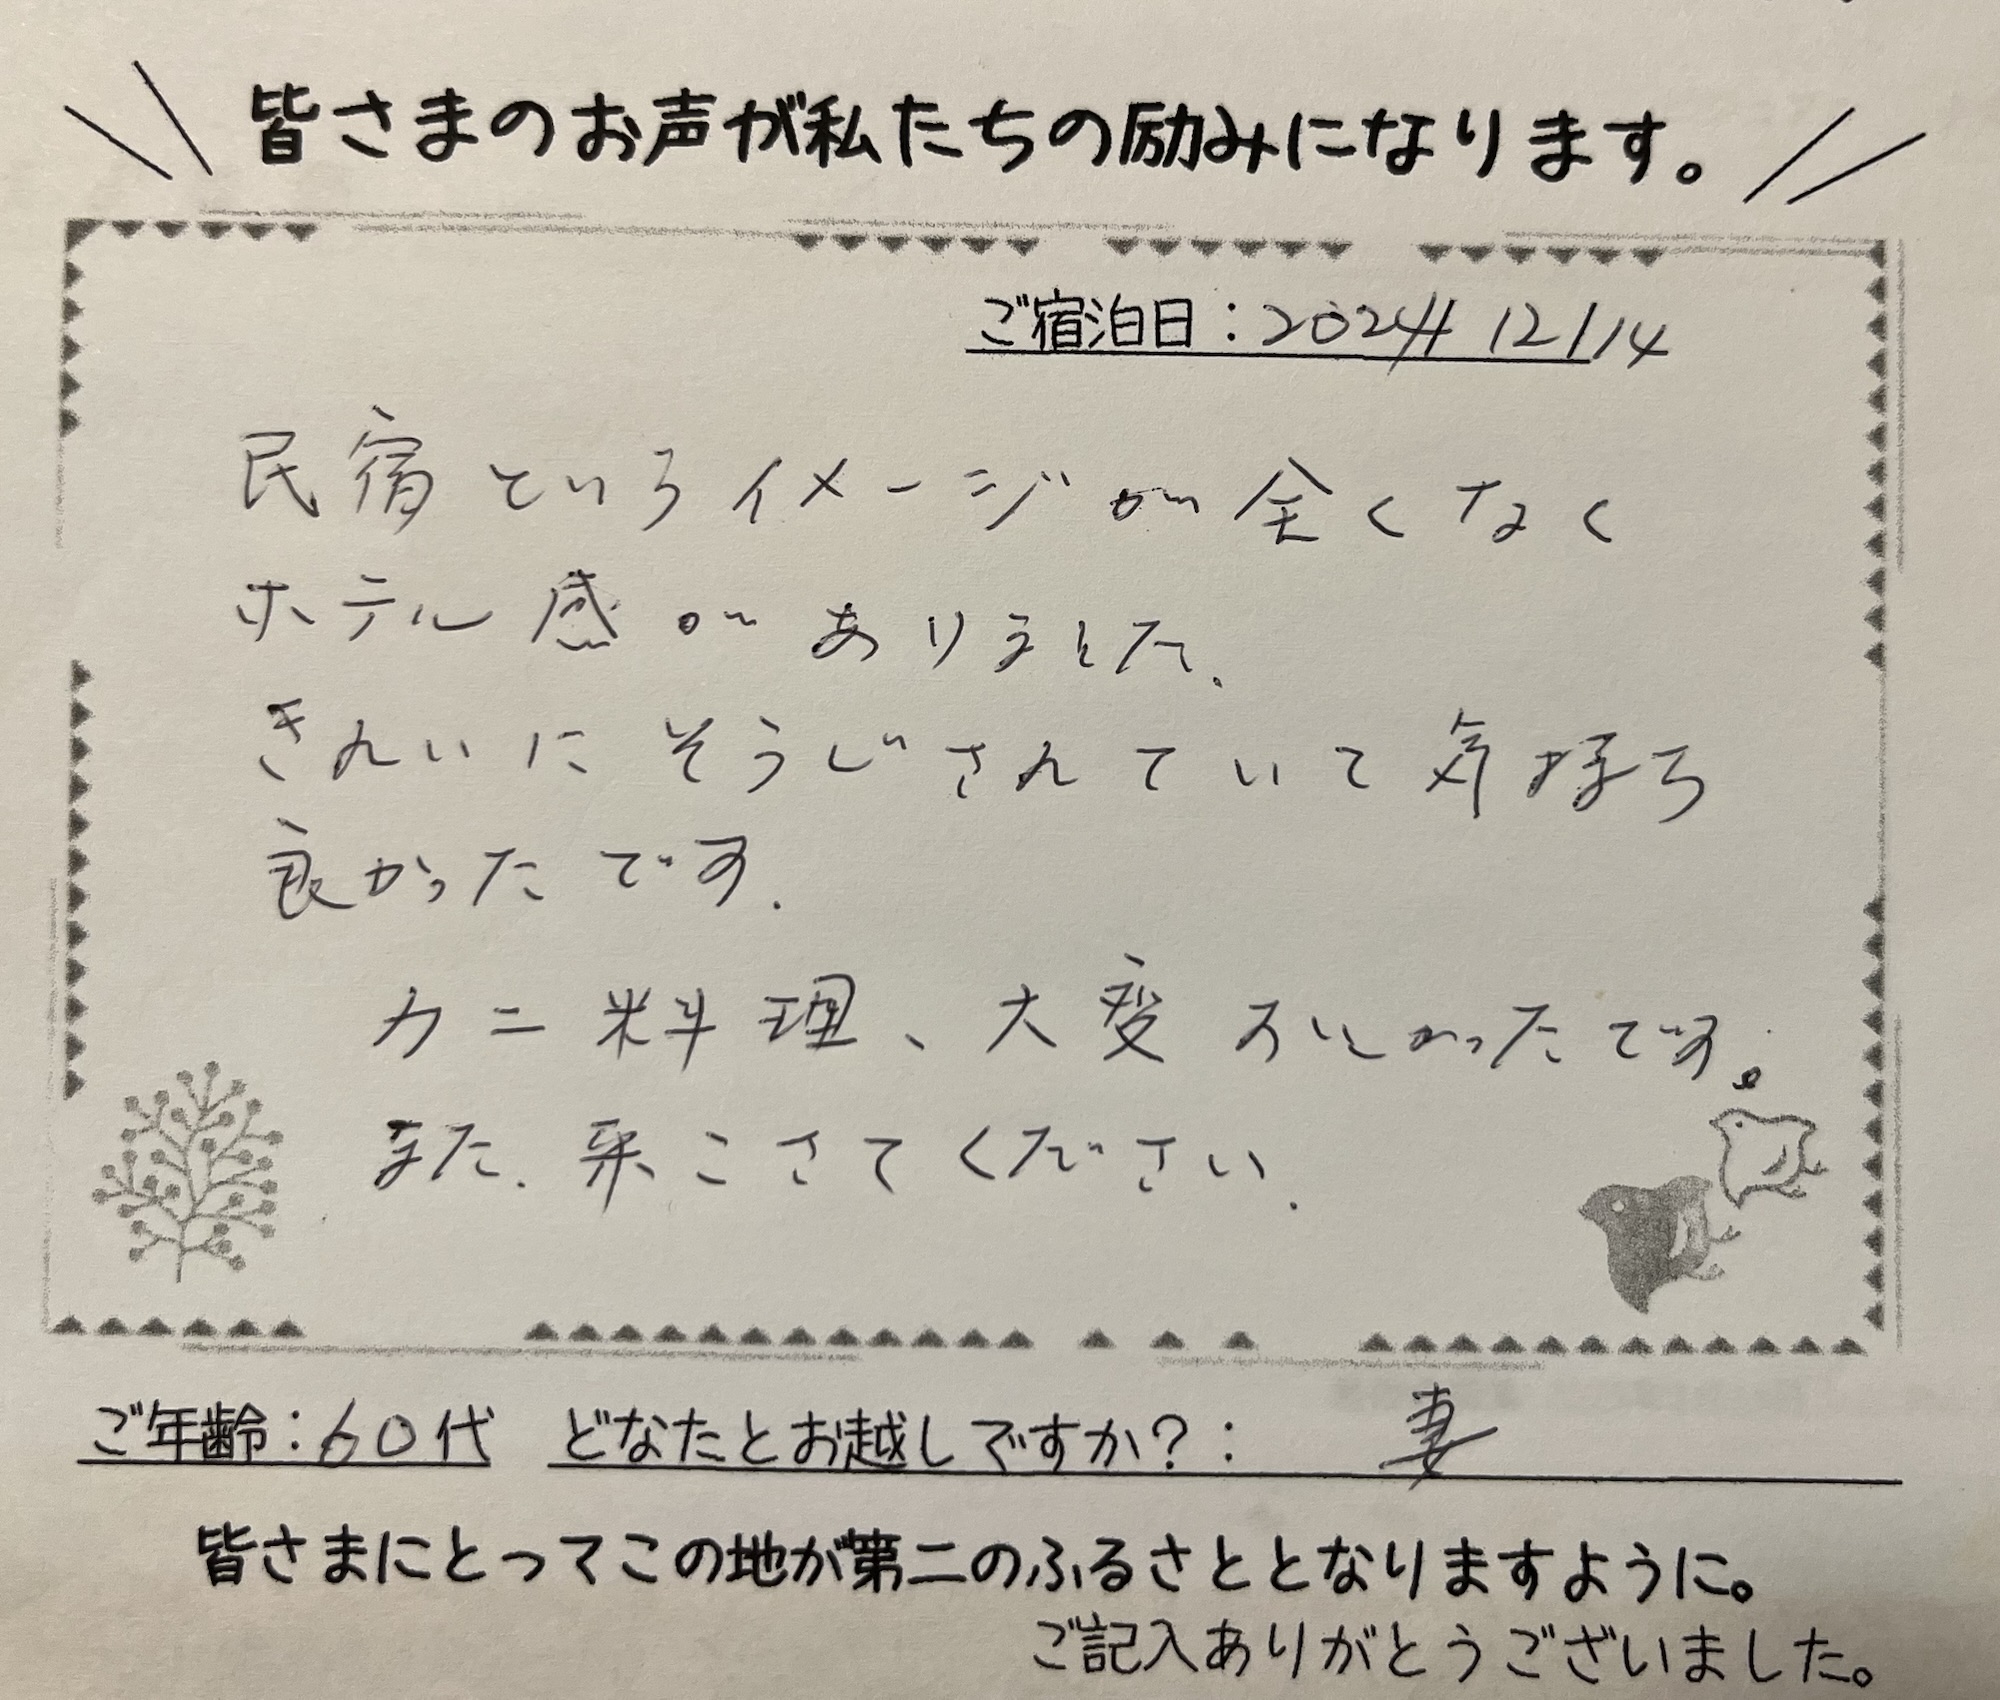 皆さまのお声が私たちの励みになります。
ご宿泊日：2024/12/14
民宿というイメージが全くなく
ホテル感がありました.
きれいにそうじされていて気持ち
良かったです.
カニ料理、大変おいしかったです。
また.来こさてください.
ご年齢：60代 どなたとお越しですか？： 妻
皆さまにとってこの地が第二のふるさととなりますように。
ご記入ありがとうございました。